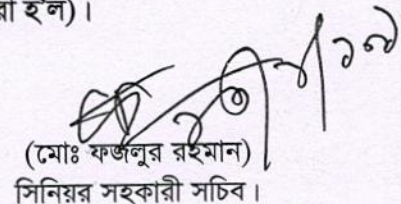 রা হল)।
(মোঃ ফজলুর রহমান)
সিনিয়র সহকারী সচিব।